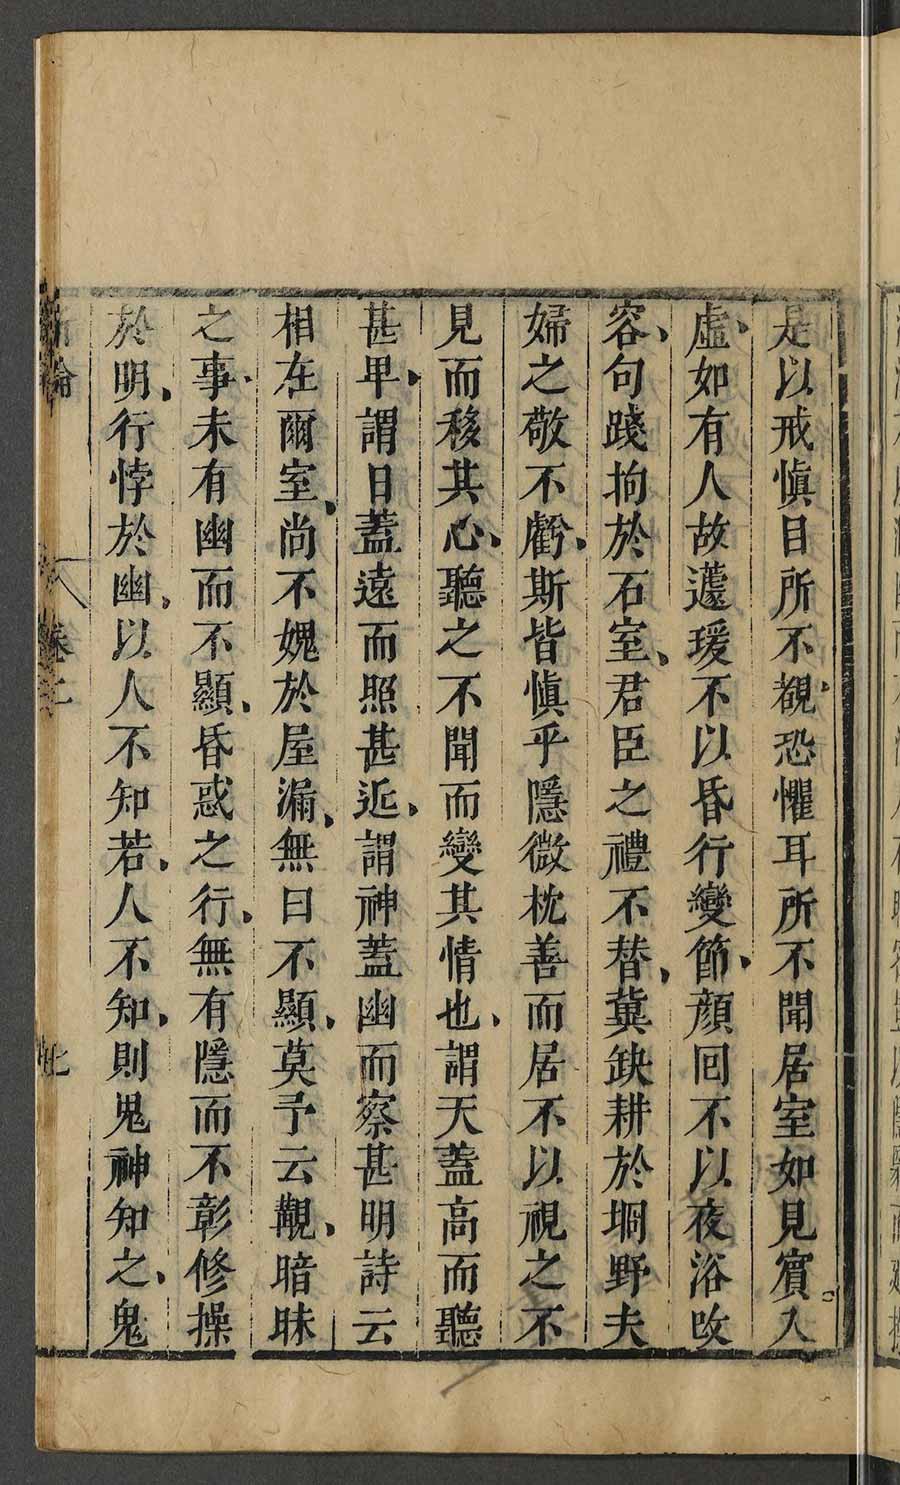 是以戒愼目所不覩恐懼耳所不聞居室如見賓入
虛如有人故蘧瑗不以昏行變節顔回不以夜浴改
容句踐拘於石室君臣之禮不替冀缺耕於坰野夫
婦之敬不虧斯皆愼乎隱微枕善而居不以視之不
見而移其心聽之不聞而變其情也謂天蓋高而聽
甚卑謂日蓋遠而照甚近謂神蓋幽而察甚明詩云
相在爾室尚不媿於屋漏無曰不顯莫予云覯暗昧
之事未有幽而不顯昏惑之行無有隱而不彰修操
於明行悖於幽以人不知若人不知則鬼神知之鬼
新論
卷二